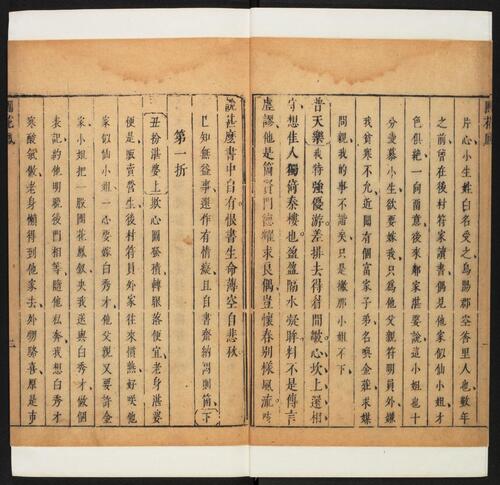 片心小生姓白名受之烏陽郡空谷里人也數年
之前曾在後村符家讀書偶見他家似仙小姐才
色俱絕一向留意後來鄰家湛婆說這小姐也十
分愛慕小生欲要嫁我只為他父親符明員外嫌
我貧寒不允近聞有個富家子弟名喚金莊求媒
問親我的事不諧矣只是撇那小姐不下
普天樂我特強優游差排去得悶懨心坎上還相
守想佳人獨倚秦樓也盈盈臨水凝眸料不是傳言
虛謬他是簡貧門德耀求良偶豈懷春別樣風流
說甚麼書中自有恨書生命薄空自悲秋
巳知無益事還作有情癡且自書齋納悶則箇下
第一折
丑扮湛婆上撳心圖蹔積轉眼落便宜老身湛婆
便是販賣營生後村符員外家往來慣熟好咲他
家似仙小姐一心要嫁白秀才他父親又要許金
家小姐把一股團花鳳釵央我送與白秀才做個
表記約他明晚後門相等隨他私奔我想白秀才
寒酸氣做老身懶得到他家去外甥駱喜原是市
團花鳳
二
團花鳳